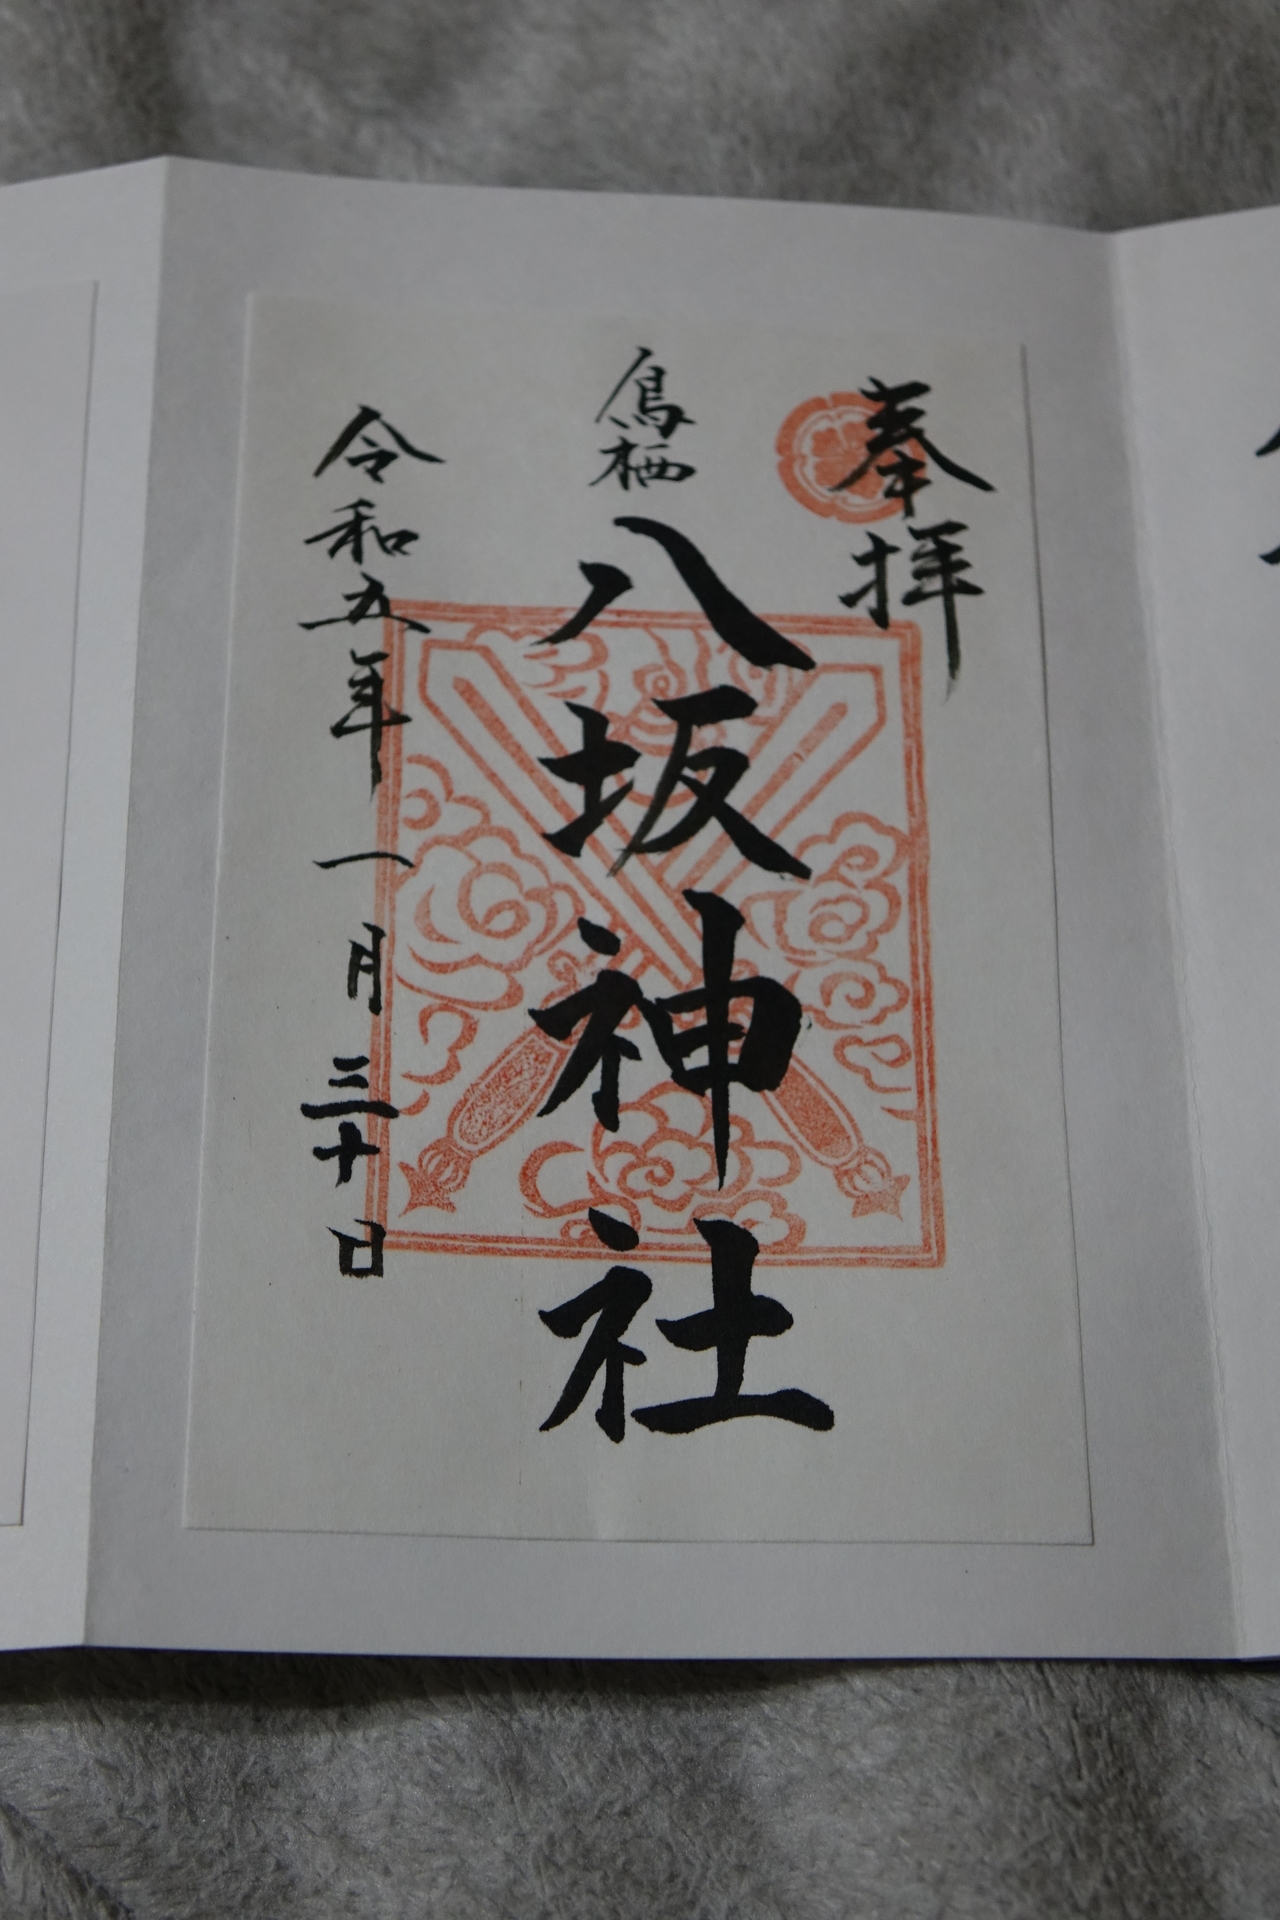 奉拝
鳥栖
八坂神社
令和五年一月三十日